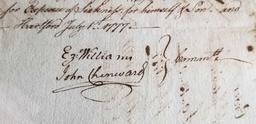 for Expences of Sickness, for himself & Son and
Hartford July 1st. 1777.
Ez. Williams
John Chenward } Committe